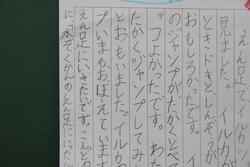 見ました。イルカ
ときドキと、しんぞうが
おもしろかったです。
のジャンプがたかくと
ッコよかったです。わた
たかくジャンプしてみ
とおもいました。イルカ
プいまもおぼえていま
えん足にいきたいです。
に、水ぞくかんのえん足に